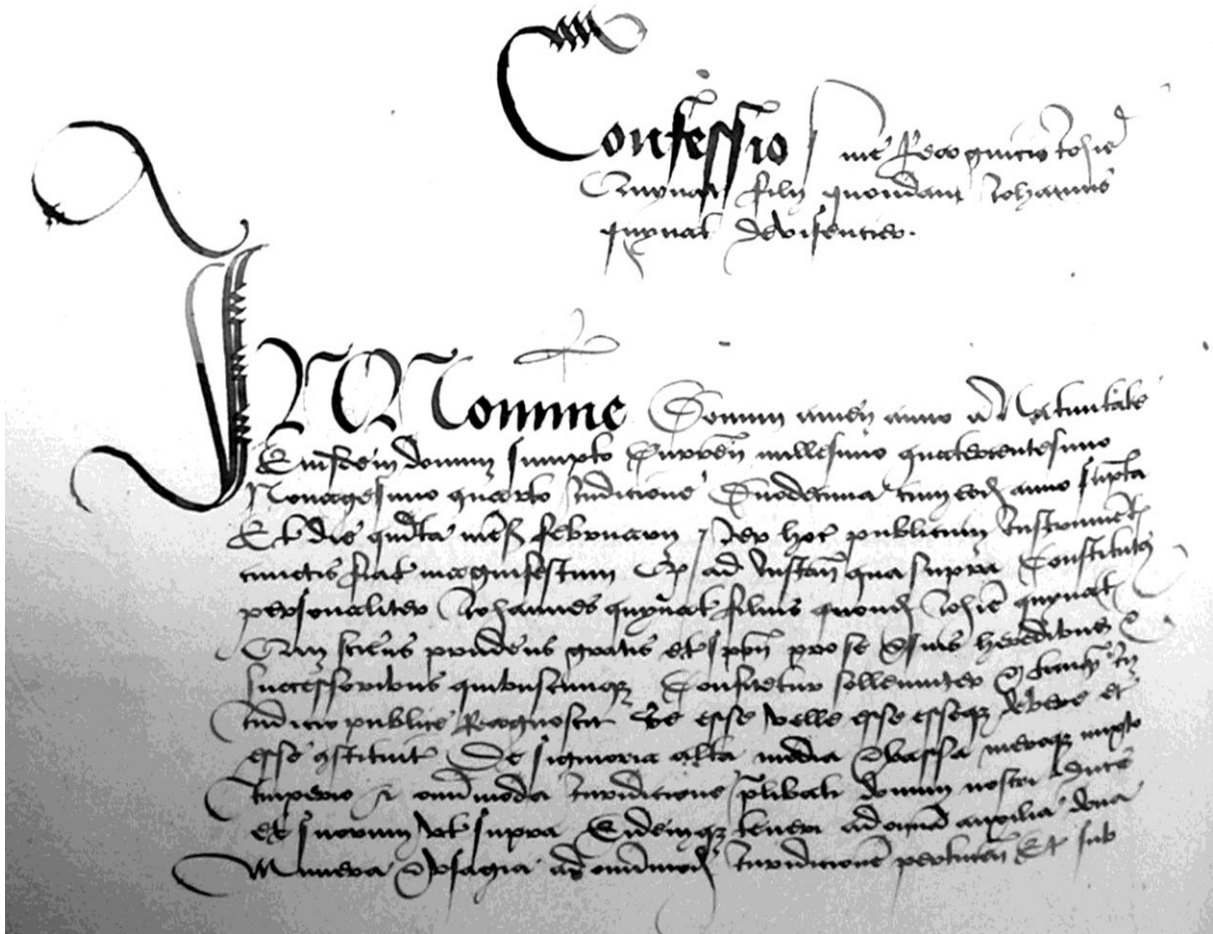 Confessio sive Recognicio Joh̄is
quynat filii quondam Johannis
quynat devisencier.
IN Nomine Domini amen anno a Nativitate
Eiusdem domini sumpto Curren̄ millesimo quatercentesimo
Nonagesimo quarto Indicione Duodecima cum eod̄ anno sūpta
Et die qūta men̄s februarii Per hoc publicum Instrument̄
cunctis fiat magnifestum Qd̄ ad Instan̄ qua supra Constitutus
personaliter Johannes quynat filius quond̄ Joh̄is quynat
Qui sciens prudens gratis et spon̄ pro se & suis heredibus &
successoribus quibuscunq̢ Confitetur sollenniter & tanq̄ in
Iudicio publice Recognoscit Se esse velle esse esseq̢ debere et
esse ꝯstituit De signoria alta media & bassa meroq̢ mixto
Imperio & omīmoda Iuridicione p̄libati domini nostri ducis
et suorum ut supra Eidemq̢ teneri ad omīa auxilia dona
Munera & usagia ad omīmod̄ Iuridicionē pertinen̄ Et sub